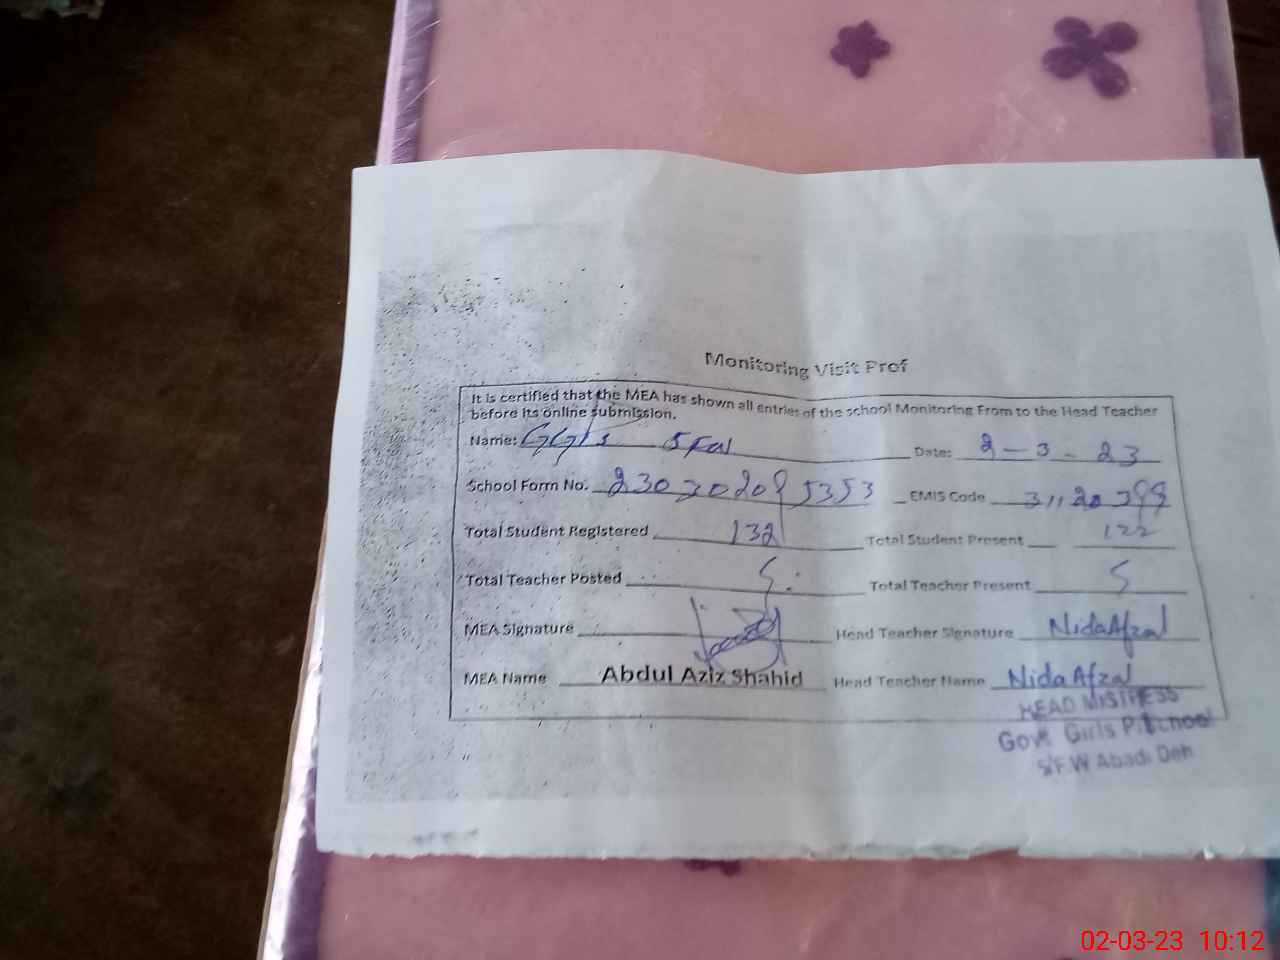 Monitoring Visit Prof
It is certified that the MEA has shown all entries of the school Monitoring From to the Head Teacher
before its online submission.
Name: Date: 2-3-23
School Form No. EMIS Code 31120399
Total Student Registered 132 Total Student Present 122
Total Teacher Posted 5 Total Teacher Present 5
MEA Signature Head Teacher Signature Nida Afzal
MEA Name Abdul Aziz Shahid Head Teacher Name Nida Afzal
HEAD MISTRESS
Govt Girls P. School
5/F.W Abadi Deh
02-03-23 10:12